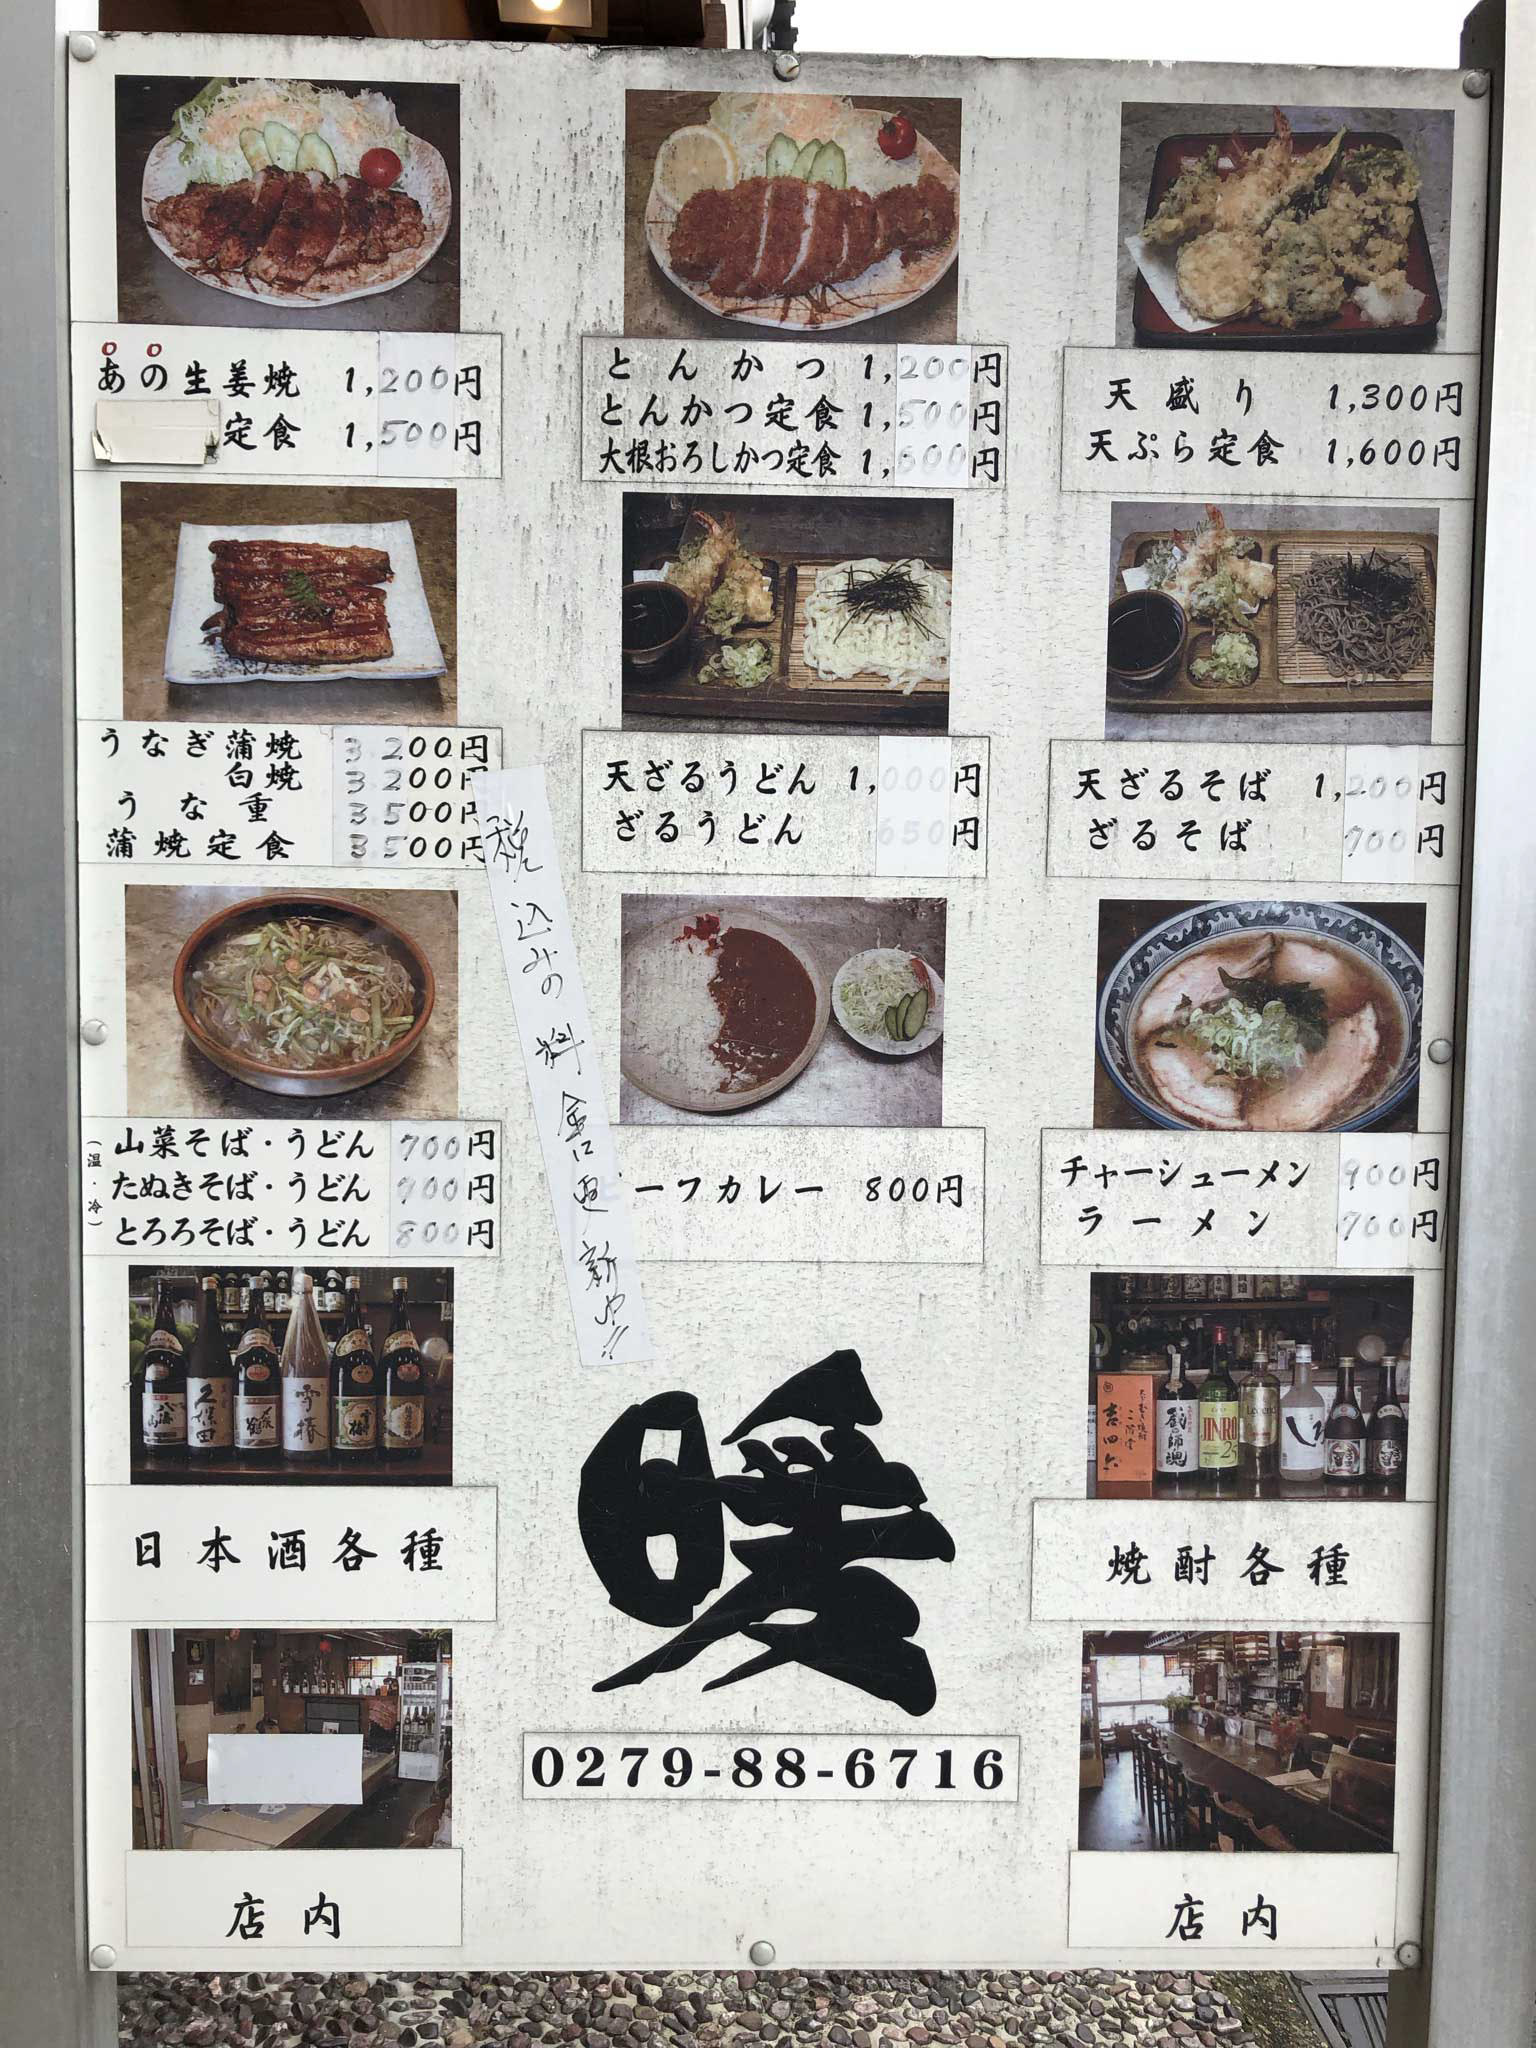 あの生姜焼 1,200円
定食 1,500円
とんかつ 1,200円
とんかつ定食 1,500円
大根おろしかつ定食 1,600円
天盛り 1,300円
天ぷら定食 1,600円
うなぎ蒲焼 3.200円
白焼 3.200円
うな重 3.500円
蒲焼定食 3.500円
天ざるうどん 1,000円
ざるうどん 650円
天ざるそば 1,200円
ざるそば 700円
税込みの料金に更新や!!
(温・冷)
山菜そば・うどん 700円
たぬきそば・うどん 700円
とろろそば・うどん 800円
ーフカレー 800円
チャーシューメン 900円
ラーメン 700円
八海山
久保田
〆張鶴
雪椿
雪中梅
吉四六
蔵の師魂
JINRO
25
Legend
日本酒各種
暖
焼酎各種
0279-88-6716
店内
店内